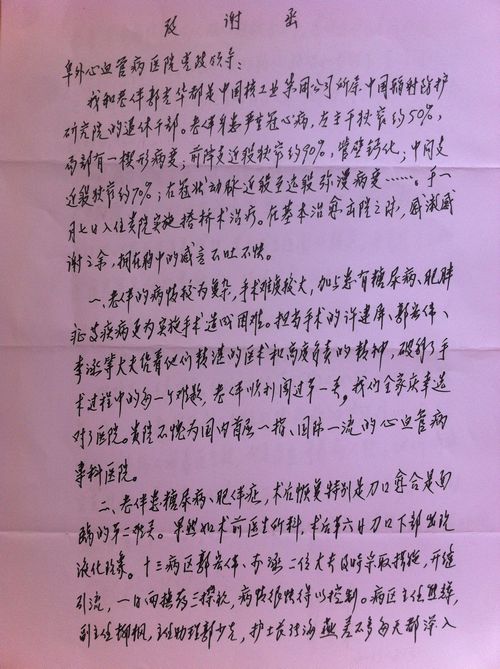 致谢函
阜外心血管病医院党政领导:
我和老伴郭光华都是中国核工业集团公司所属中国辐射防护
研究院的退休干部。老伴身患严重冠心病,左主干狭窄约50%,
局部有一楔形病变;前降支近段狭窄约90%,管壁钙化;中间支
近段狭窄约70%;右冠状动脉近段至远段弥漫病变……。于一
月七日入住贵院实施搭桥术治疗。在基本治愈出院之时,感激感
谢之余,拥在胸中的感言不吐不快。
一、老伴的病情较为复杂,手术难度较大,加上患有糖尿病、肥胖
症等疾病更为实施手术造成困难。担当手术的许建屏、郭岩伟、
李丞等大夫凭着他们精湛的医术和高度负责的精神,破解了手
术过程中的每一个难题,老伴顺利闯过第一关。我们全家庆幸选
对了医院。贵院不愧为国内首屈一指、国际一流的心血管病
专科医院。
二、老伴患糖尿病、肥胖症,术后恢复特别是刀口愈合是面
临的第二难关。果然如术前医生所料,术后第六日刀口下部出现
液化现象。十三病区郭岩伟、李丞二位大夫及时采取措施,开缝
引流,一日两换药三探视,病情很快得以控制。病区主任
副主任柳枫,主任助理郭少先,护士长张海燕差不多每天都深入